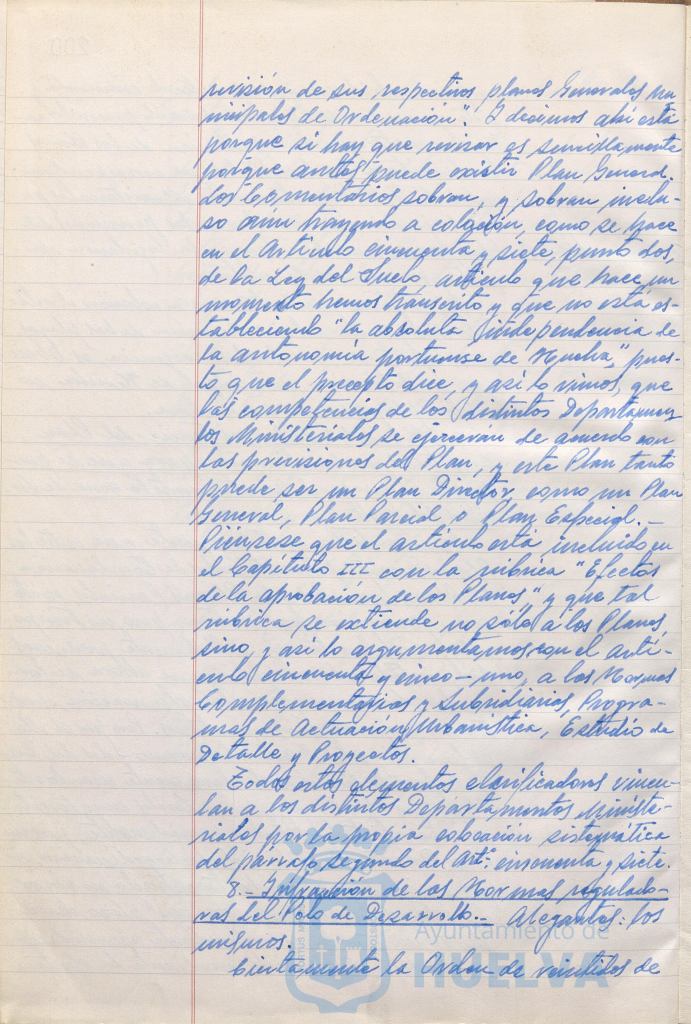 revisión de sus respectivos planes Generales Mu
nicipales de Ordenación". Y decimos ahí está
porque si hay que revisar es sencillamente
porque antes puede existir Plan General.
Los Comentarios sobran, y sobran inclu-
so aún trayendo a colación, como se hace
en el Artículo cincuenta y siete, punto dos,
de la Ley del Suelo, artículo que hace un
momento hemos transcrito y que no está es-
tableciendo "la absoluta independencia de
la autonomía portuense de Huelva", pues-
to que el precepto dice, y así lo vimos, que
las competencias de los distintos Departamen
tos Ministeriales se ejercerán de acuerdo con
las previsiones del Plan, y este Plan tanto
puede ser un Plan Director, como un Plan
General, Plan Parcial o Plan Especial.-
Piénsese que el artículo está incluido en
el Capítulo III con la rúbrica "Efectos
de la aprobación de los Planes" y que tal
rúbrica se extiende no sólo a los Planes
sino, y así lo argumentamos con el artí-
culo cincuenta y cinco-uno, a las Normas
Complementarias y Subsidiarias, Progra-
mas de Actuación Urbanística, Estudio de
Detalle y Proyectos.
Todos estos elementos clarificadores vincu-
lan a los distintos Departamentos Ministe-
riales por la propia colocación sistemática
del párrafo segundo del artº. cincuenta y siete.
8.- Infracción de las Normas regulado-
ras del Polo de Desarrollo.- Alegantes: los
mismos.
Ciertamente la Orden de veintidos de
Ayuntamiento de
HUELVA